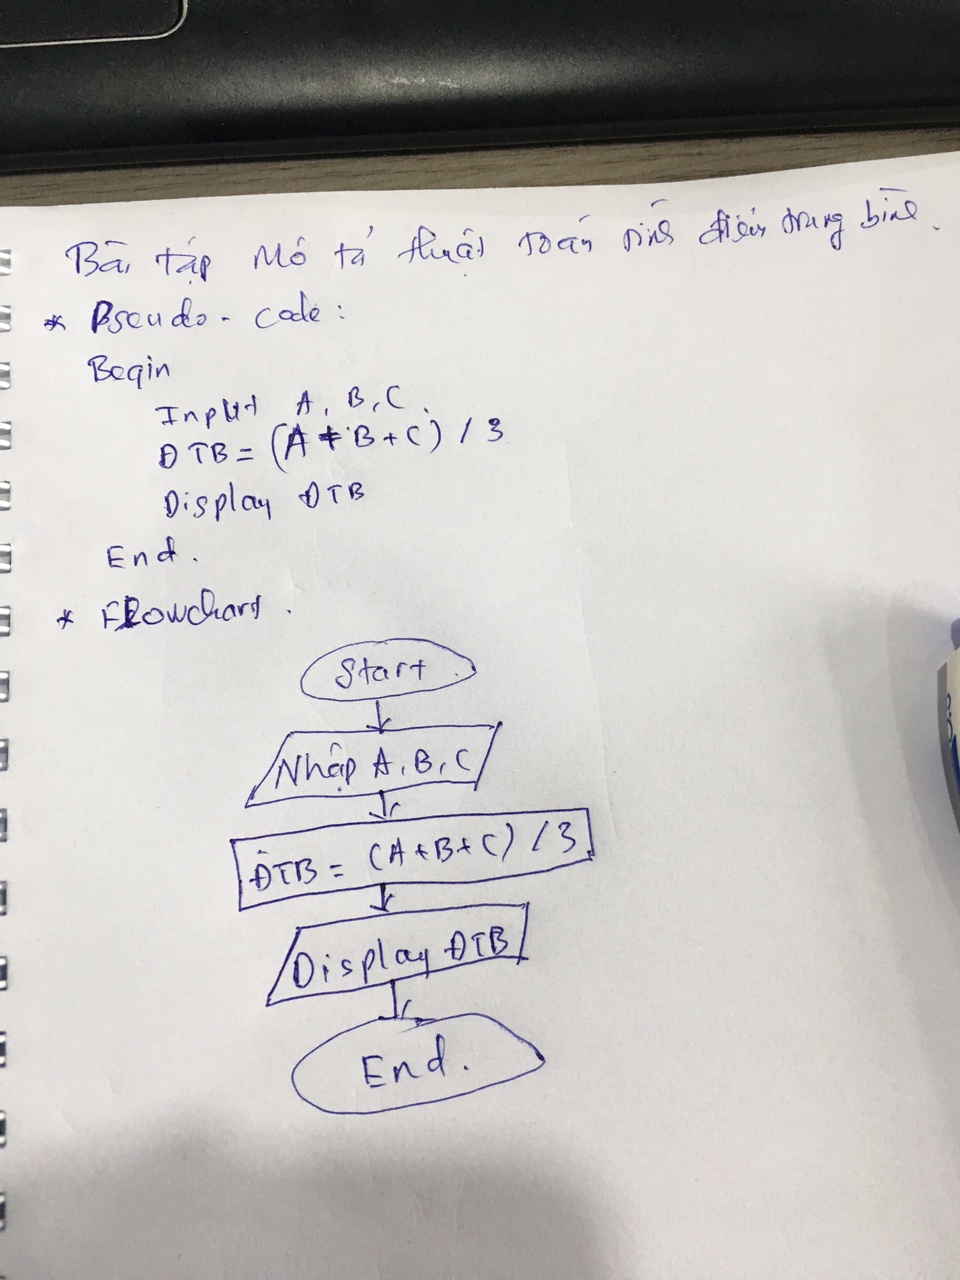 Bài tập Mô tả thuật toán tính điểm trung bình.
* Pseudo-code:
Begin
Input A, B, C.
ĐTB = (A + B + C) / 3
Display ĐTB
End.
* Flowchart.
Start
Nhập A, B, C
ĐTB = (A+B+C) / 3
Display ĐTB
End.